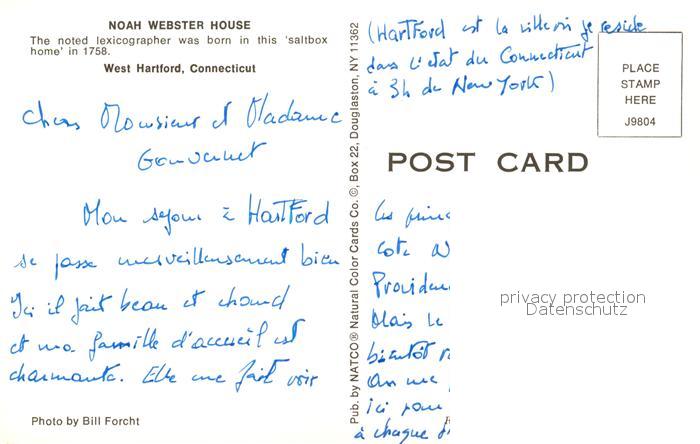 NOAH WEBSTER HOUSE
The noted lexicographer was born in this 'saltbox
home' in 1758.
West Hartford, Connecticut
Chers Monsieur et Madame
Gouvernet
Mon séjour à HartFord
se passe merveilleusement bien
Ici il fait beau et chaud
et ma famille d'accueil est
charmante. Elle me fait voir
Photo by Bill Forcht
Pub. by NATCO® Natural Color Cards Co. ©, Box 22, Douglaston, NY 11362
(HartFord est la ville où je reside
dans l'état du Connecticut
à 3h de New York)
PLACE
STAMP
HERE
J9804
POST CARD
les
cote
Providen
Mais le
bientôt
On me
ici pour
à chaque
privacy protection
Datenschutz